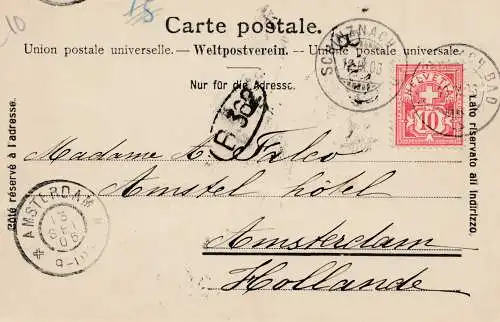 10
Carte postale.
Union postale universelle. — Weltpostverein. — Unione postale universale.
Nur für die Adresse.
Côté réservé à l'adresse.
Lato riservato all'indirizzo.
SCHINZNACH
HELVETIA
10
BAD
Madame L. Falco
Amstel hôtel
Amsterdam
Hollande
AMSTERDAM